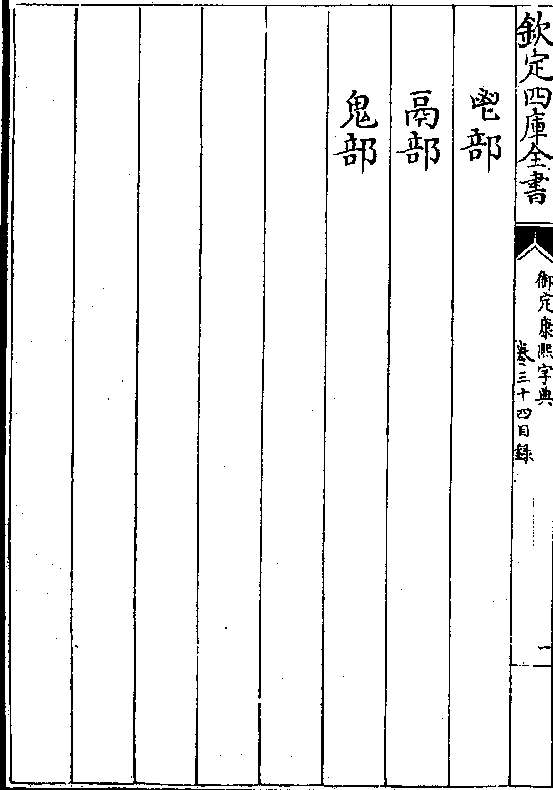 欽定四庫全書
御定康熙字典
卷三十四目録
一
鬯部
鬲部
鬼部